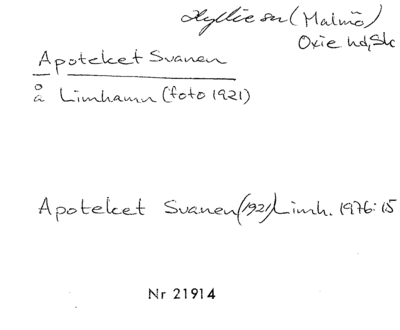 Hyllie sn (Malmö)
Oxie hd, Sk
Apoteket Svanen
å Limhamn (foto 1921)
Apoteket Svanen (1921) Limh. 1976:15
Nr 21914